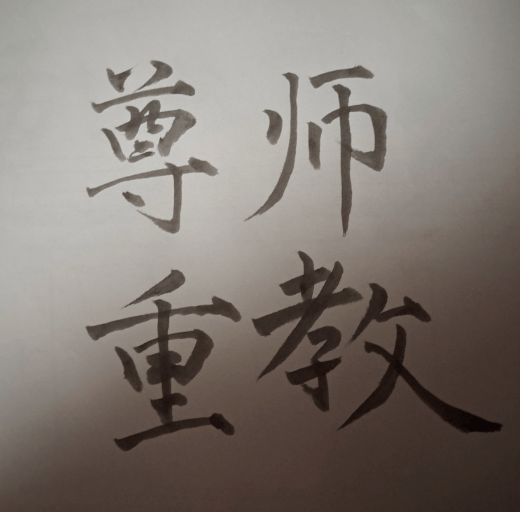 尊师
重教